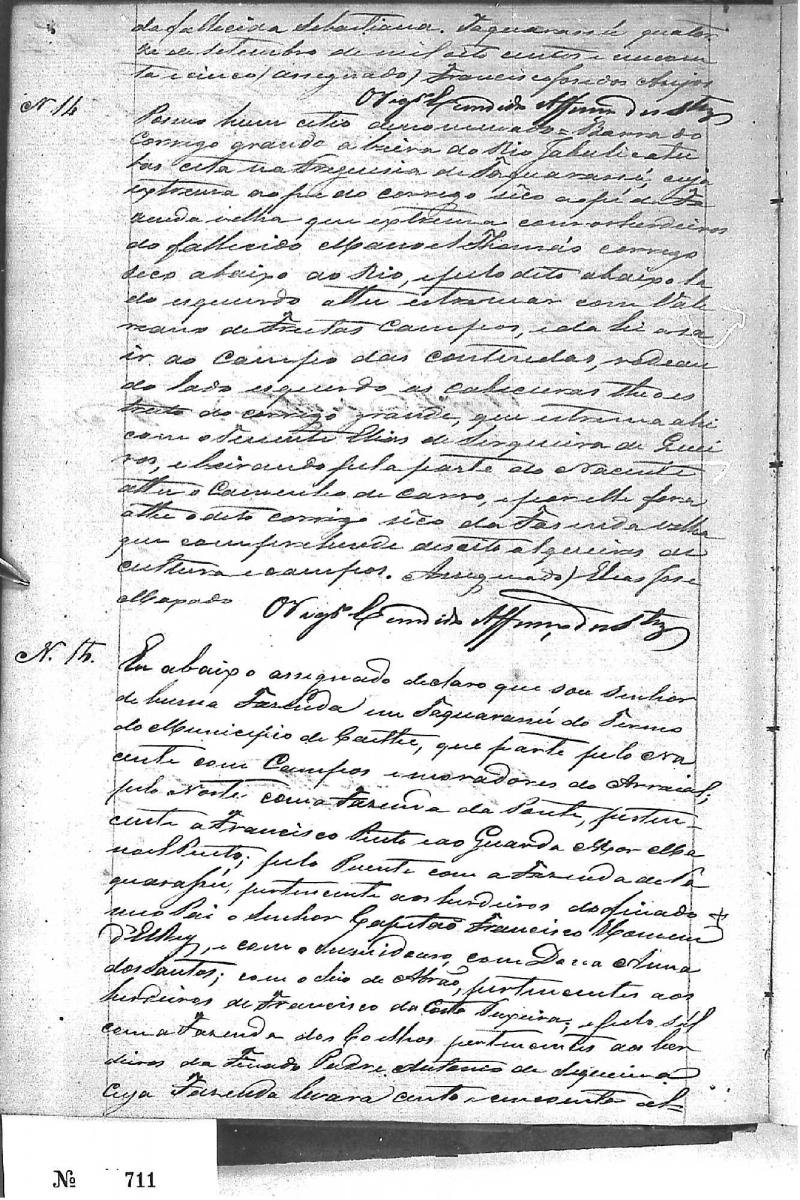 da fallecida Sebastiana. Taquarassú quator
ze de setembro de mil oito centos e cincoen
ta e cinco (assignado) Francisco José dos Anjos
O Vigº Candido Affonso dos Stºs
N. 14
Posuo hum citio denominado = Barra do
Corrigo grande a beira do Rio
cita na Freguesia de Taquarassú, cuja
extrema ao pé do corrigo sêco ao pé da Fa
zenda velha que extrema com os herdeiros
do fallecido Manoel Thomás corrigo
seco abaixo ao Rio, e pelo dito abaixo la
do esquerdo athe estremar com Vale
reano de Freitas Campos, e da hi a sa
ir ao Campo das contendas, rodean
do lado esquerdo as cabiceiras
do corrigo grande, que estrema ahi
com o Tenente Elias de Serqueira de Quei
ros, e beirando pela parte do Nacente
athe o Caminho de carro, e por elle fora
athe o dito corrigo sêco da Fazenda velha
que comprehende desoito alqueires de
cultura e campos. Assignado) Elias José
Maxado O Vigº Candido Affonso dos Stºs
N. 15.
Eu abaixo assignado declaro que sou senhor
de huma Fazenda em Taquarassú do Termo
do Municipio de Caithé, que parte pelo Na
cente com Campos e moradores do Arraial;
pelo Norte com a Fazenda da Ponte, perten-
cente a Francisco Pinto e ao Guarda Mor Ma
noel Pinto; pelo Puente com a Fazenda de Ta
quarassú, pertencente aos herdeiros do finado
meo Pai o Senhor Capitão Francisco Homem
d'ElRey, e com o com Dona Anna
dos Santos; com o Sitio de Abrão, pertencentes aos
herdeiros de Francisco da Costa Teixeira; e pelo Sul
com a Fazenda dos Coelhos pertencentes aos her
deiros do Finado Padre Antonio de Siqueira
Cuja Fazenda levara cento e cincoenta al-
Nº 711